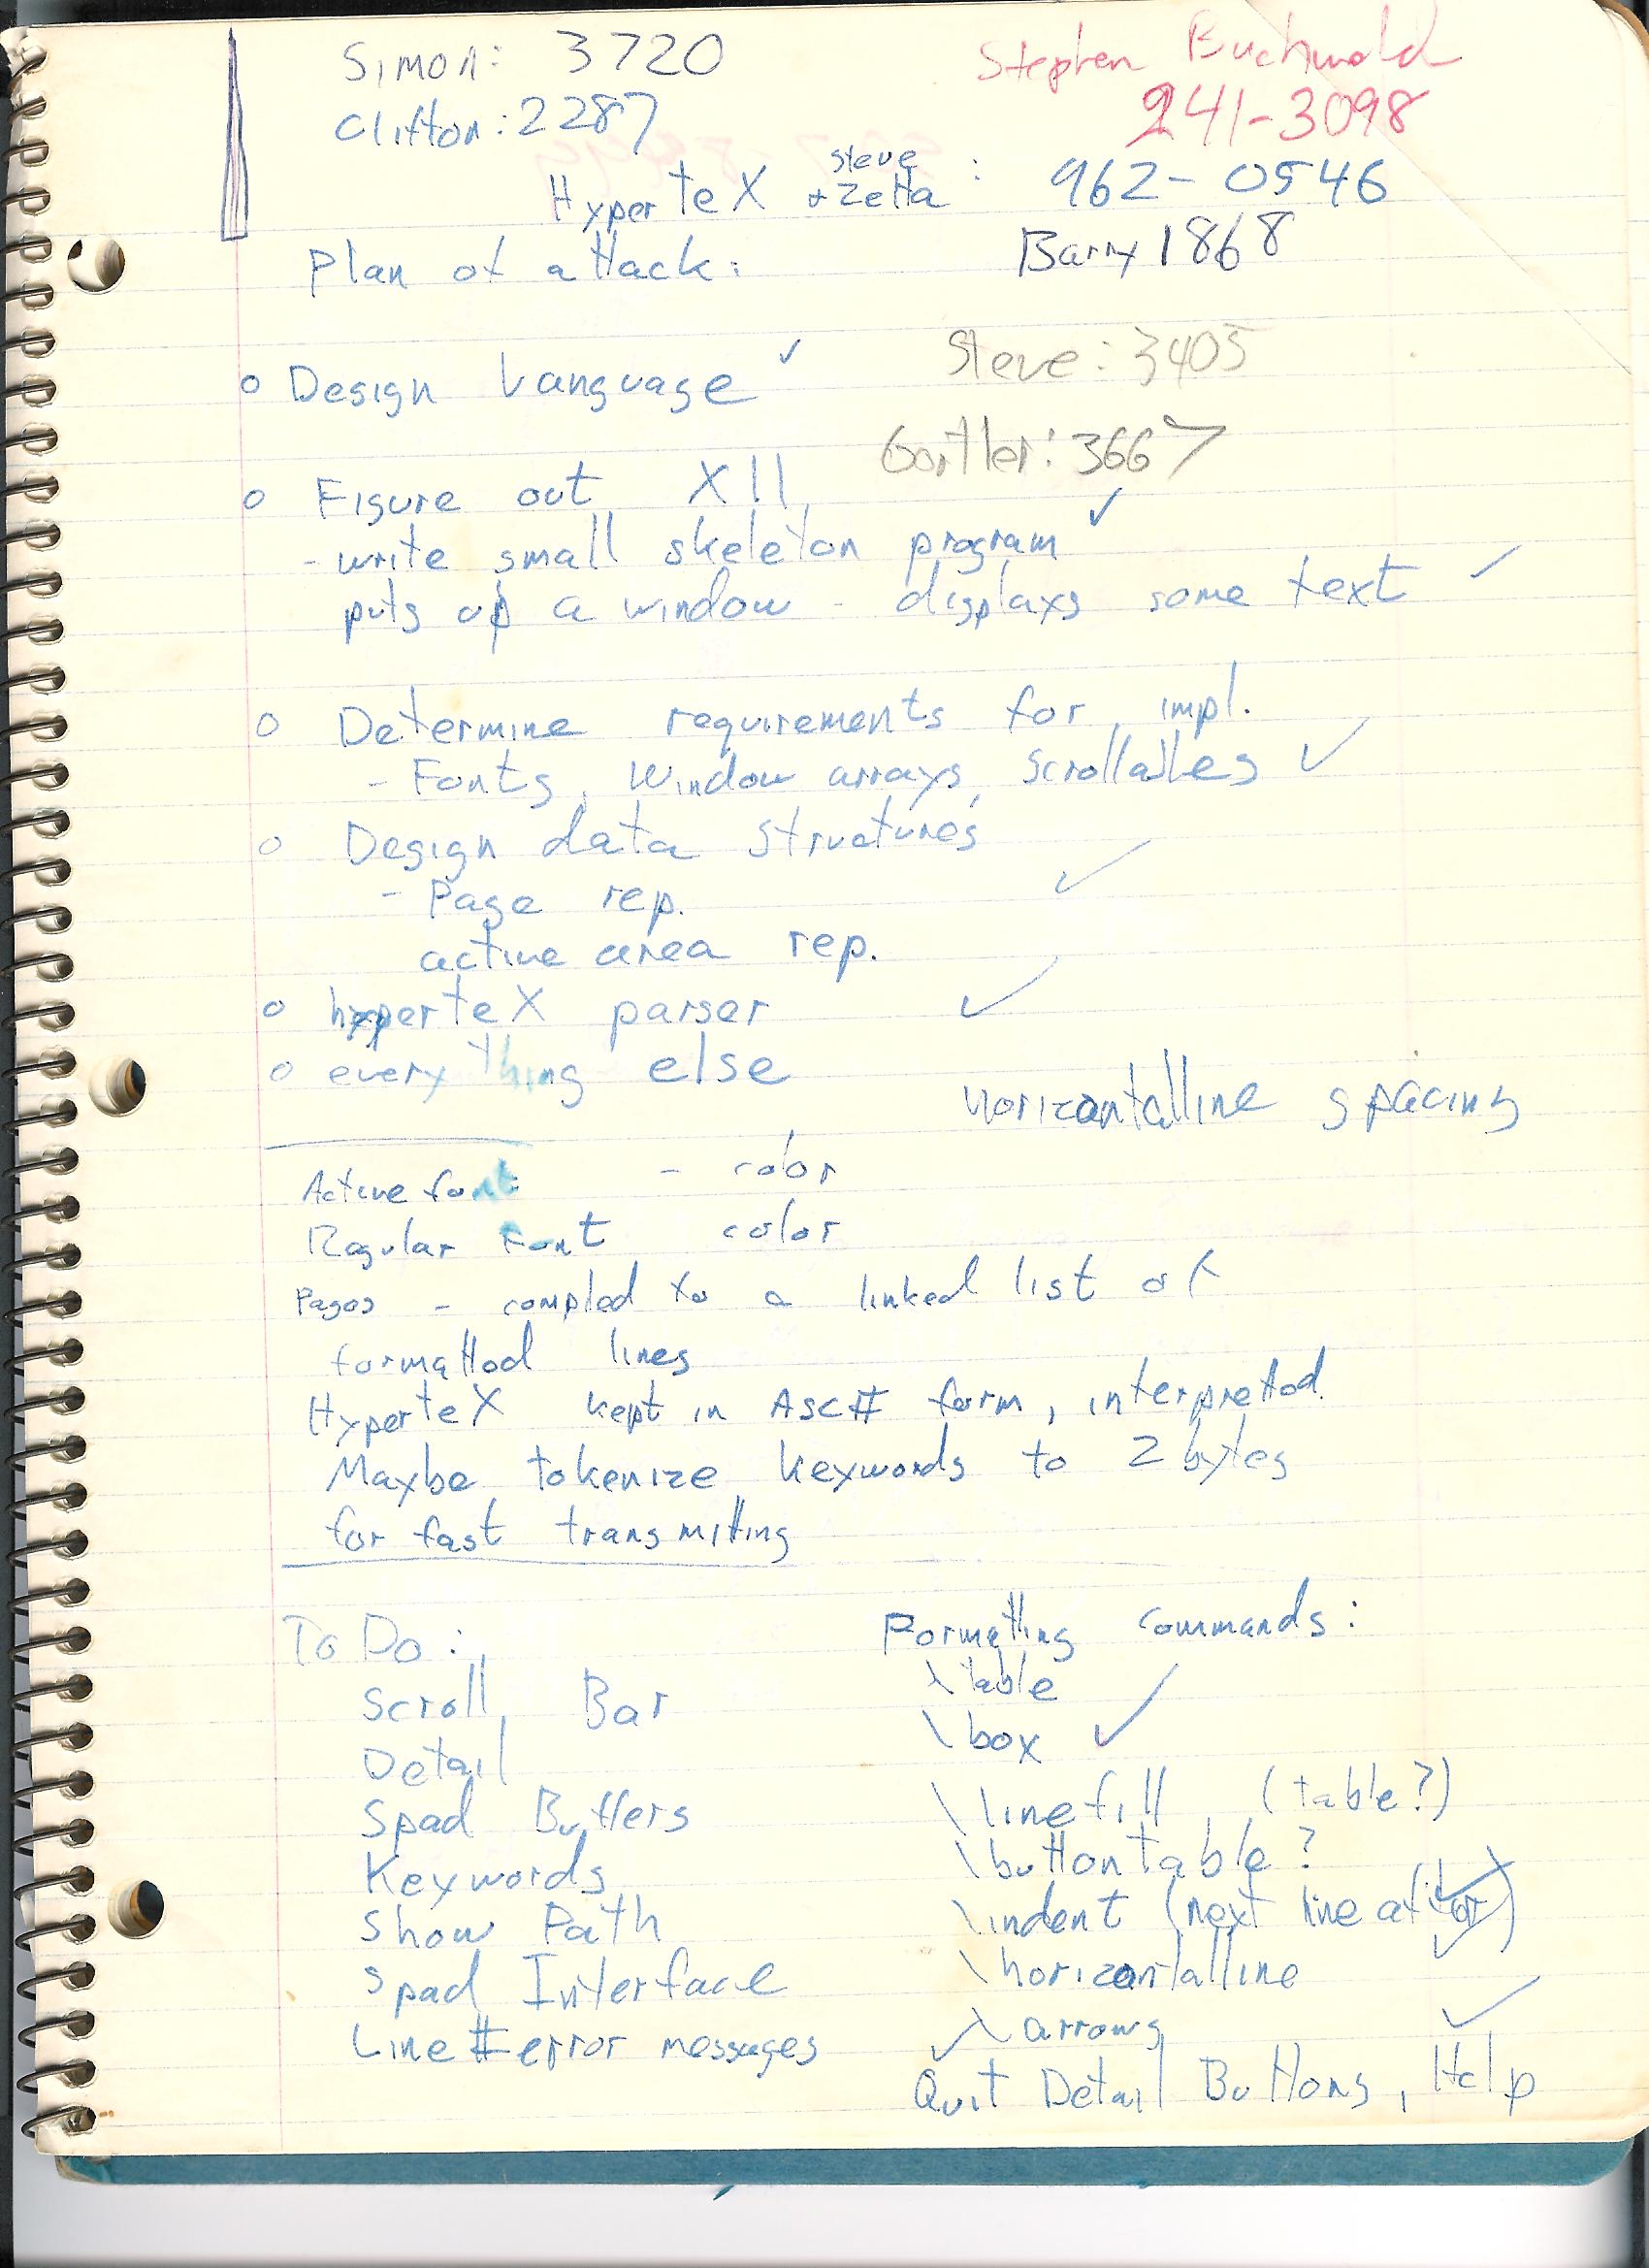 Simon: 3720
Stephen Buchwald
241-3098
Clifton: 2287
HyperteX steve + Zetta : 962-0546
Barry 1868
Plan of attack:
o Design Language ✓
Steve: 3405
Gortler: 3667
o Figure out X11
- write small skeleton program ✓
puts up a window - displays some text ✓
o Determine requirements for impl.
- Fonts, Window arrays, scrollables ✓
o Design data structures
- Page rep. ✓
active area rep.
o hyperteX parser ✓
o everything else
horizontalline spacing
Active font: - color
Regular Font color
Pages - compled to a linked list of
formatted lines
HyperteX kept in ASCII form, interpretted.
Maybe tokenize keywords to 2 bytes
for fast transmitting
To Do:
Scroll Bar
Detail
Spad Buffers
Keywords
Show Path
Spad Interface
Line # error messages
Formatting Commands:
\table
\box ✓
\linefill (table?)
\buttontable?
\indent (next line
\horizontalline ✓
✓ \arrows
Quit Detail Buttons, Help ✓